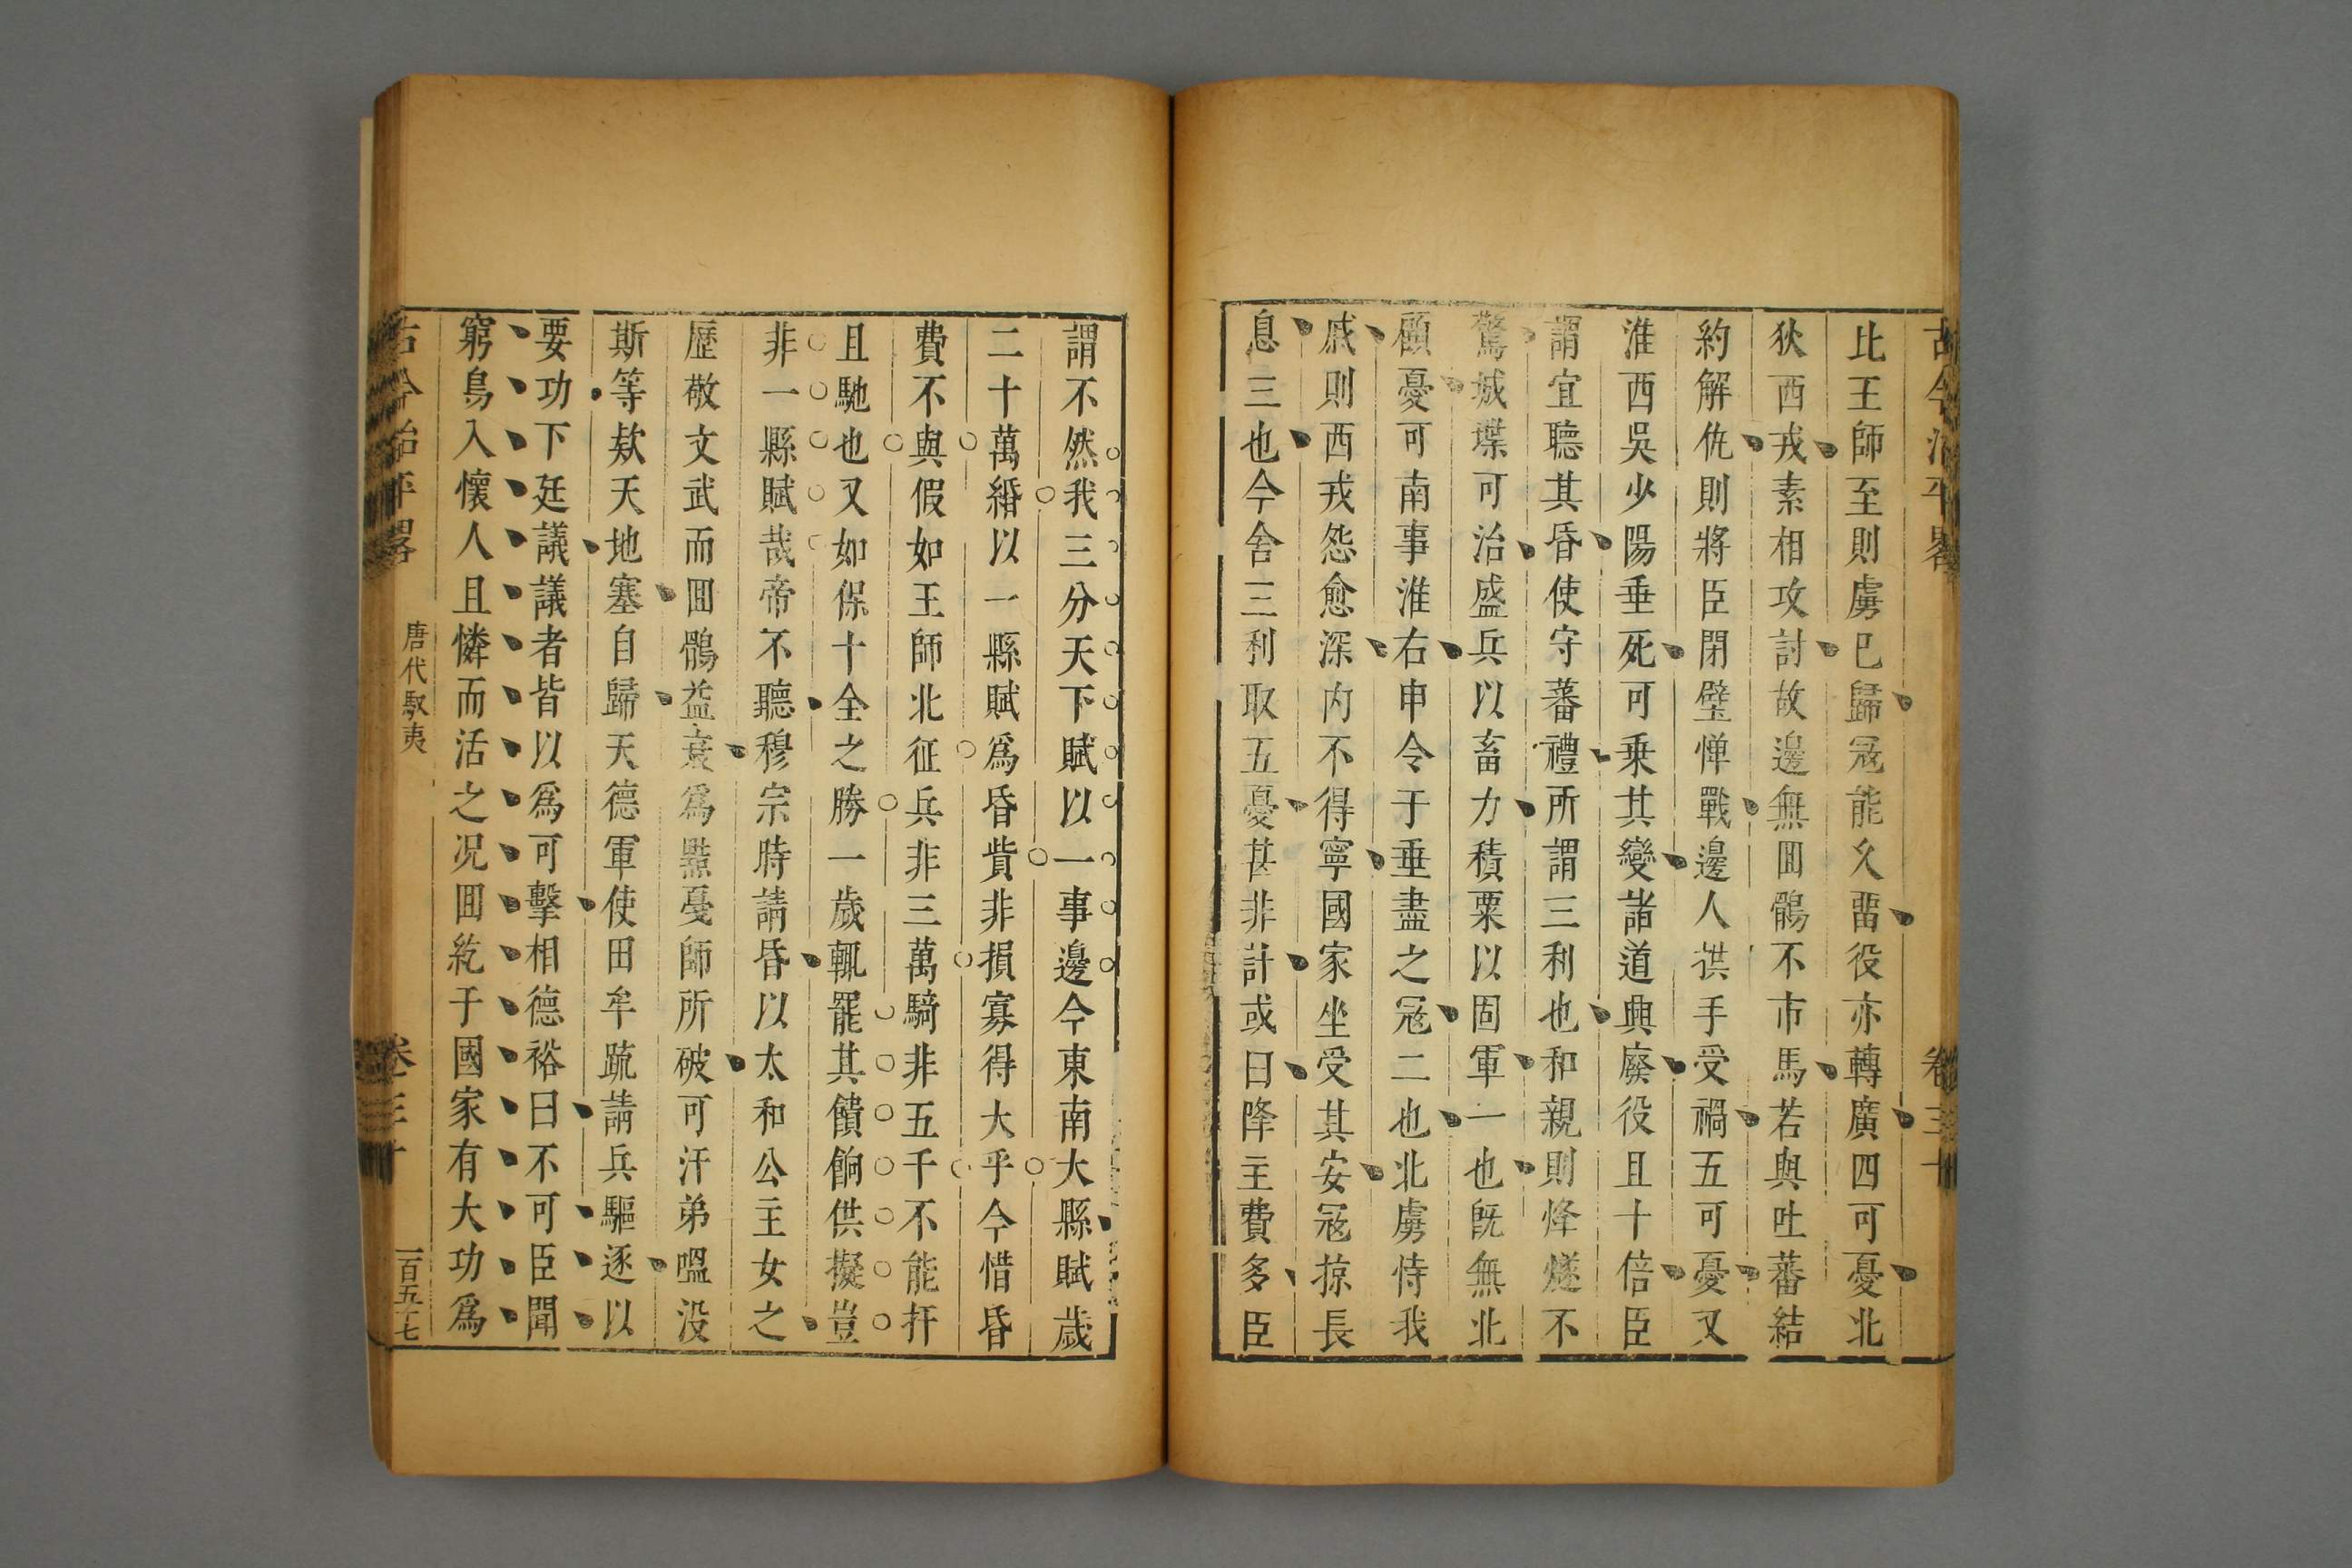 古今治平畧 卷三十
比王師至則虜已歸寇能久畱役亦轉廣四可憂北
狄西戎素相攻討故邊無囬鶻不市馬若與吐蕃結
約解仇則將臣閉壁憚戰邊人拱手受禍五可憂又
淮西吳少陽垂死可乗其變諸道興廢役且十倍臣
謂宜聽其昏使守蕃禮所謂三利也和親則烽燧不
驚城堞可治盛兵以畜力積粟以固軍一也旣無北
顧憂可南事淮右申令于垂盡之寇二也北虜恃我
戚則西戎怨愈深内不得寧國家坐受其安寇掠長
息三也今舍三利取五憂甚非計或曰降主費多臣
謂不然我三分天下賦以一事邊今東南大縣賦歲
二十萬緡以一縣賦爲昏貲非損寡得大乎今惜昏
費不與假如王師北征兵非三萬騎非五千不能扞
且馳也又如保十全之勝一歲輒罷其饋餉供擬豈
非一縣賦哉帝不聽穆宗時請昏以太和公主女之
歷敬文武而囬鶻益衰爲黠戛師所破可汗弟嗢没
斯等欵天地塞自歸天德軍使田牟䟽請兵驅逐以
要功下廷議議者皆以爲可擊相德裕曰不可臣聞
窮鳥入懷人且憐而活之况囬紇于國家有大功爲
古今治平畧 唐代馭夷 卷三十 一百五十七